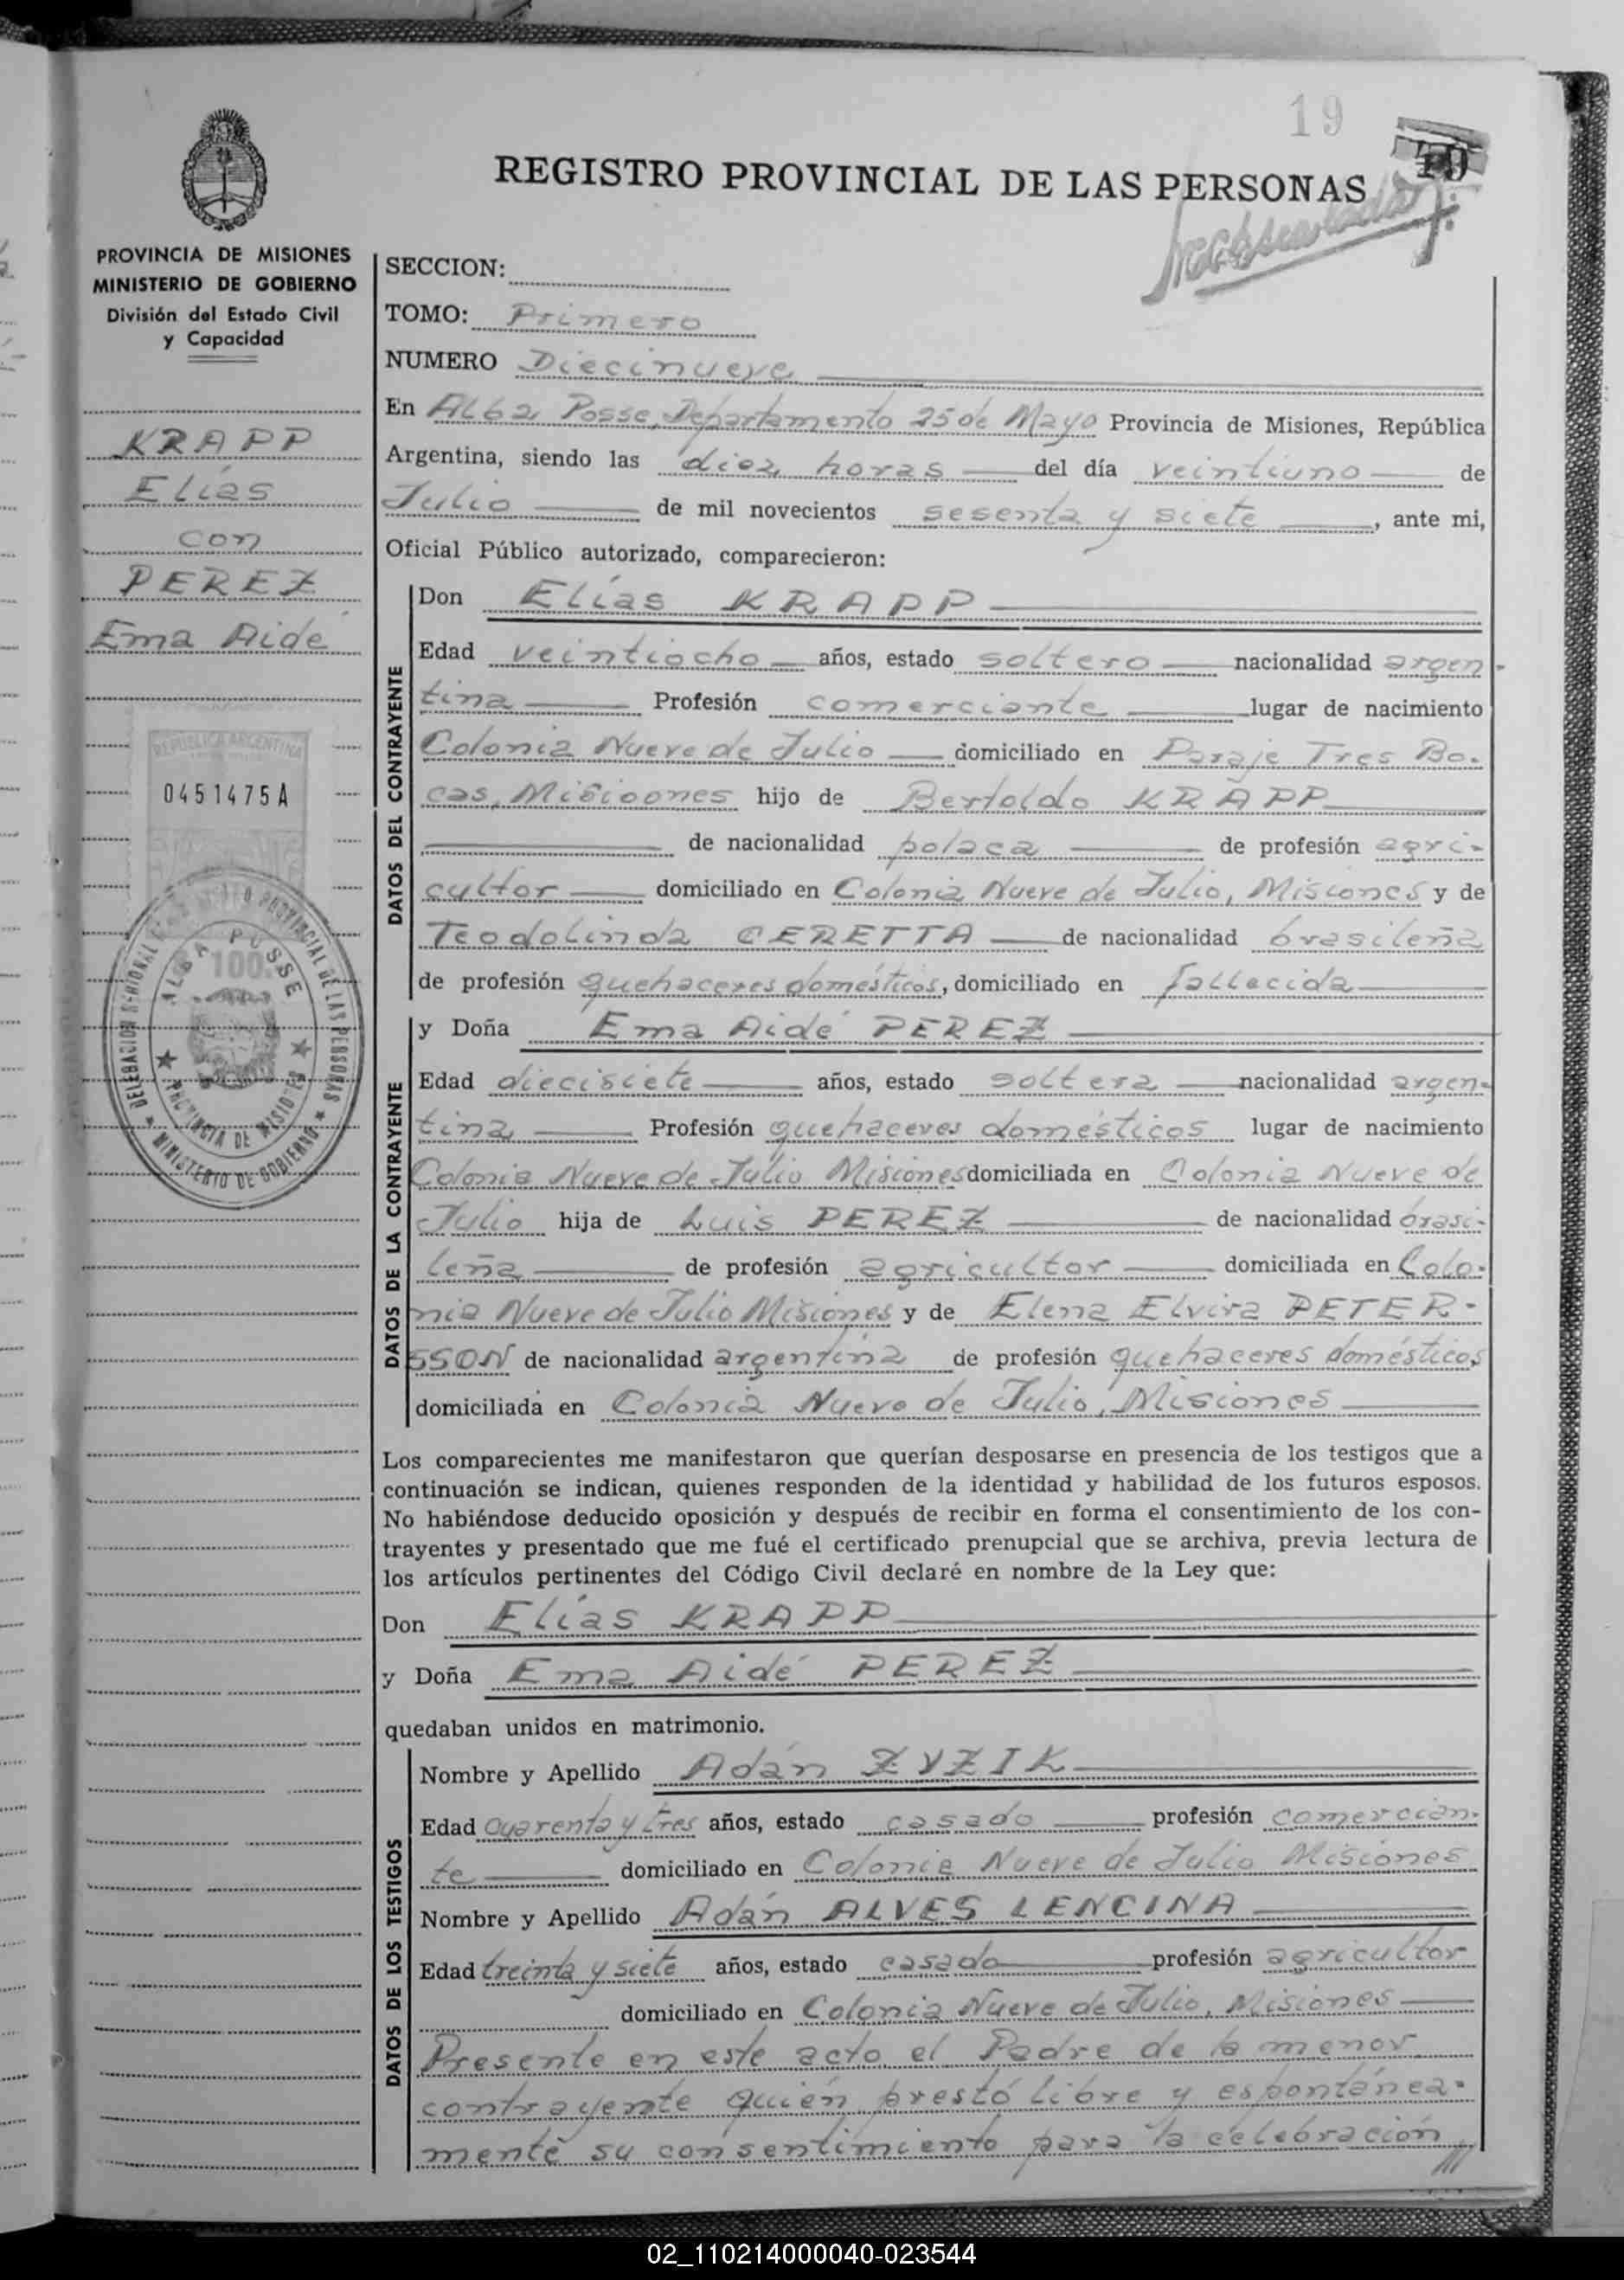 19
19
REGISTRO PROVINCIAL DE LAS PERSONAS
PROVINCIA DE MISIONES
MINISTERIO DE GOBIERNO
División del Estado Civil
y Capacidad
KRAPP
Elías
con
PEREZ
Ema Aidé
REPUBLICA ARGENTINA
0451475A
100
DELEGACION REGIONAL REGISTRO PROVINCIAL DE LAS PERSONAS
★ MINISTERIO DE GOBIERNO ★
ALBA POSSE
★ PROVINCIA DE MISIONES ★
SECCION:
TOMO: Primero
NUMERO Diecinueve
En Alba Posse, Departamento 25 de Mayo Provincia de Misiones, República
Argentina, siendo las diez horas del día veintiuno de
Julio de mil novecientos sesenta y siete, ante mi,
Oficial Público autorizado, comparecieron:
DATOS DEL CONTRAYENTE
Don Elías KRAPP
Edad veintiocho años, estado soltero nacionalidad argen-
tina Profesión comerciante lugar de nacimiento
Colonia Nueve de Julio domiciliado en Paraje Tres Bo-
cas, Misioones hijo de Bertoldo KRAPP
de nacionalidad polaca de profesión agri-
cultor domiciliado en Colonia Nueve de Julio, Misiones y de
Teodolinda CERETTA de nacionalidad brasileña
de profesión quehaceres domésticos, domiciliado en fallecida
DATOS DE LA CONTRAYENTE
y Doña Ema Aidé PEREZ
Edad diecisiete años, estado soltera nacionalidad argen-
tina Profesión quehaceres domésticos lugar de nacimiento
Colonia Nueve de Julio Misiones domiciliada en Colonia Nueve de
Julio hija de Luis PEREZ de nacionalidad brasi-
leña de profesión agricultor domiciliada en Colo-
nia Nueve de Julio Misiones y de Elena Elvira PETER-
SSON de nacionalidad argentina de profesión quehaceres domésticos
domiciliada en Colonia Nueve de Julio, Misiones
Los comparecientes me manifestaron que querían desposarse en presencia de los testigos que a
continuación se indican, quienes responden de la identidad y habilidad de los futuros esposos.
No habiéndose deducido oposición y después de recibir en forma el consentimiento de los con-
trayentes y presentado que me fué el certificado prenupcial que se archiva, previa lectura de
los artículos pertinentes del Código Civil declaré en nombre de la Ley que:
Don Elías KRAPP
y Doña Ema Aidé PEREZ
quedaban unidos en matrimonio.
DATOS DE LOS TESTIGOS
Nombre y Apellido Adán ZYZIK
Edad cuarenta y tres años, estado casado profesión comercian-
te domiciliado en Colonia Nueve de Julio Misiones
Nombre y Apellido Adán ALVES LENCINA
Edad treinta y siete años, estado casado profesión agricultor
domiciliado en Colonia Nueve de Julio, Misiones
Presente en este acto el Padre de la menor
contrayente quién prestó libre y espontánea-
mente su consentimiento para la celebración
///
02_110214000040-023544